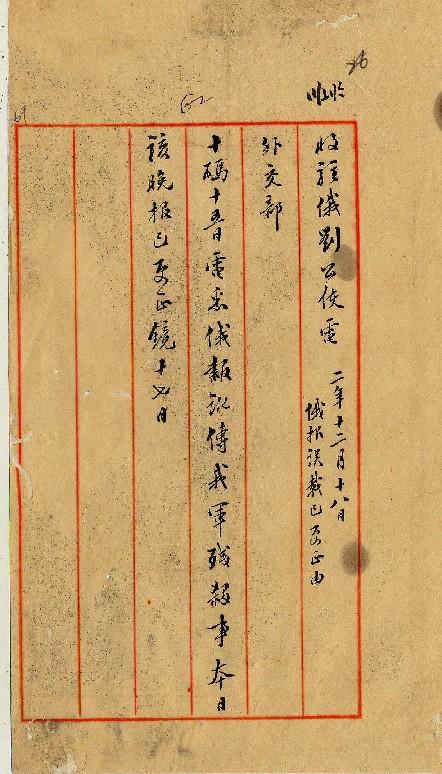 收驻俄劉公使電 二年十二月十八日
俄报误載已更正由
外交部
十碼十五日電悉俄報訛傳我軍殘殺事本日
該晚报已更正鏡十七日
62
61